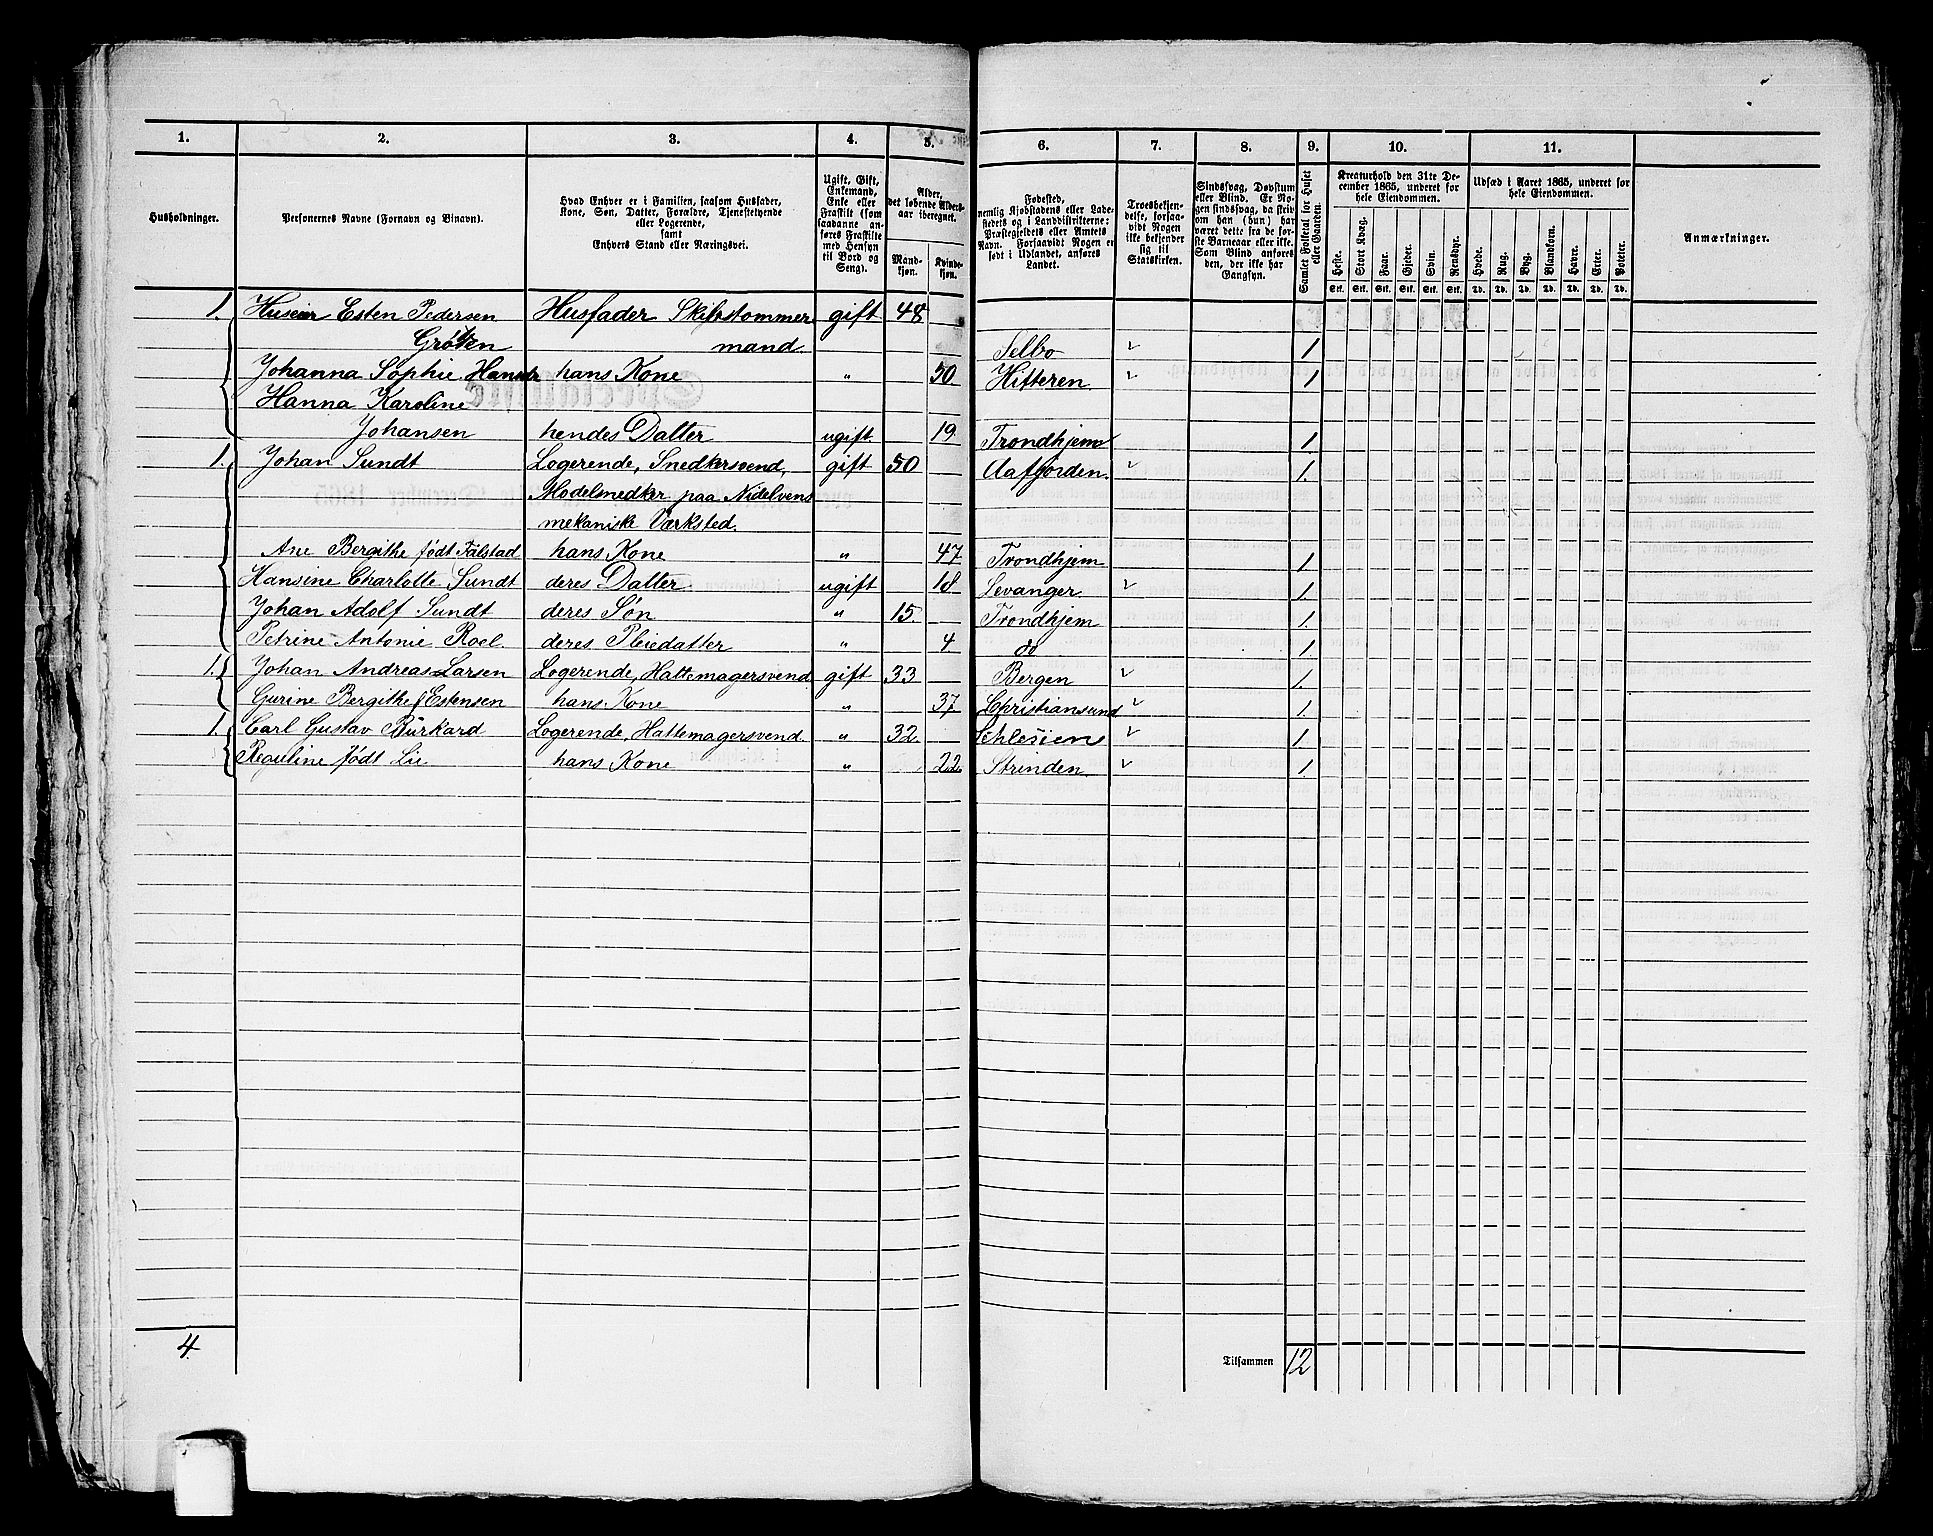 1. 2. 3. 4. 5. 6. 7. 8. 9. 10. 11.
Husholdninger.
Personernes Navne (Fornavn og Binavn).
Hvad Enhver er i Familien, saasom Husfader,
Kone, Søn, Datter, Forældre, Tjenestetyende
eller Logerende,
samt
Enhvers Stand eller Næringsvei.
Ugift, Gift,
Enkemand,
Enke eller
Fraskilt (som
saadanne an-
føres Fraskilte
med Hensyn
til Bord og
Seng).
Alder,
det løbende Alders-
aar iberegnet.
Mand-
kjøn.
Kvinde-
kjøn.
Fødested,
nemlig Kjøbstadens eller Lade-
stedets og i Landdistrikterne:
Præstegjeldets eller Amtets
Navn. Forsaavidt Nogen er
født i Udlandet, anføres
Landet.
Troesbekjen-
delse, forsaa-
vidt Nogen
ikke bekjender
sig til
Statskirken.
Sindssvag, Døvstum
eller Blind. Er No-
gen sindssvag, da skriv
om han (hun) har
været dette fra de før-
ste Barneaar eller ikke.
Som Blind anføres
den, der ikke har
Gangsyn.
Samlet Folketal for Huset
eller Gaarden.
Kreaturhold den 31te De-
cember 1865, underet for
hele Eiendommen.
Heste. Stort Kvæg. Faar. Gjeder. Svin. Rensdyr.
Stk. Stk. Stk. Stk. Stk. Stk.
Udsæd i Aaret 1865, underet for
hele Eiendommen.
Hvede. Rug. Byg. Blandkorn. Havre. Erter. Poteter.
Td. Td. Td. Td. Td. Td. Td.
Anmærkninger.
1. Huseier Esten Pedersen Husfader Skibstommer gift 48
Grøtten mand. Selbo 1
Johanna Sophie Hansdr hans Kone " 50 Hitteren 1
Hanna Karoline
Johansen hendes Datter ugift 19 Trondhjem 1
1. Johan Sundt Logerende, Snedkersvend, gift 50 Aafjorden 1.
Modelsnedker paa Nidelvens
mekaniske Værksted.
Ane Bergithe født Falstad hans Kone " 47 Trondhjem 1.
Hansine Charlotte Sundt deres Datter ugift 18 Levanger 1.
Johan Adolf Sundt deres Søn " 15. Trondhjem 1.
Petrine Antonie Roel. deres Pleiedatter " 4. do 1.
1. Johan Andreas Larsen Logerende, Hattemagersvend gift 33 Bergen 1.
Gurine Bergithe f Estensen hans Kone " 37 Christiansund 1.
1. Carl Gustav Burkard Logerende, Hattemagersvend. " 32 Schlesien 1.
Reguline født Lie hans Kone " 22 Strinden 1.
4.
Tilsammen 12